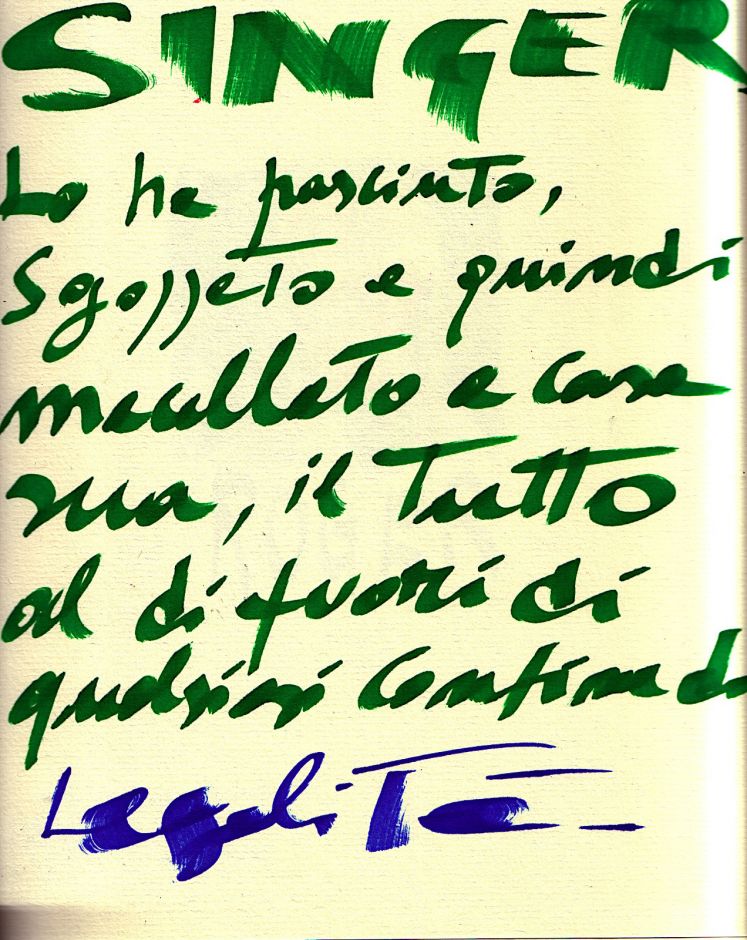 SINGER
Lo ha pasciuto,
Sgozzato e quindi
macellato a casa
sua, il Tutto
al di fuori di
qualsiasi confine di
Legalità